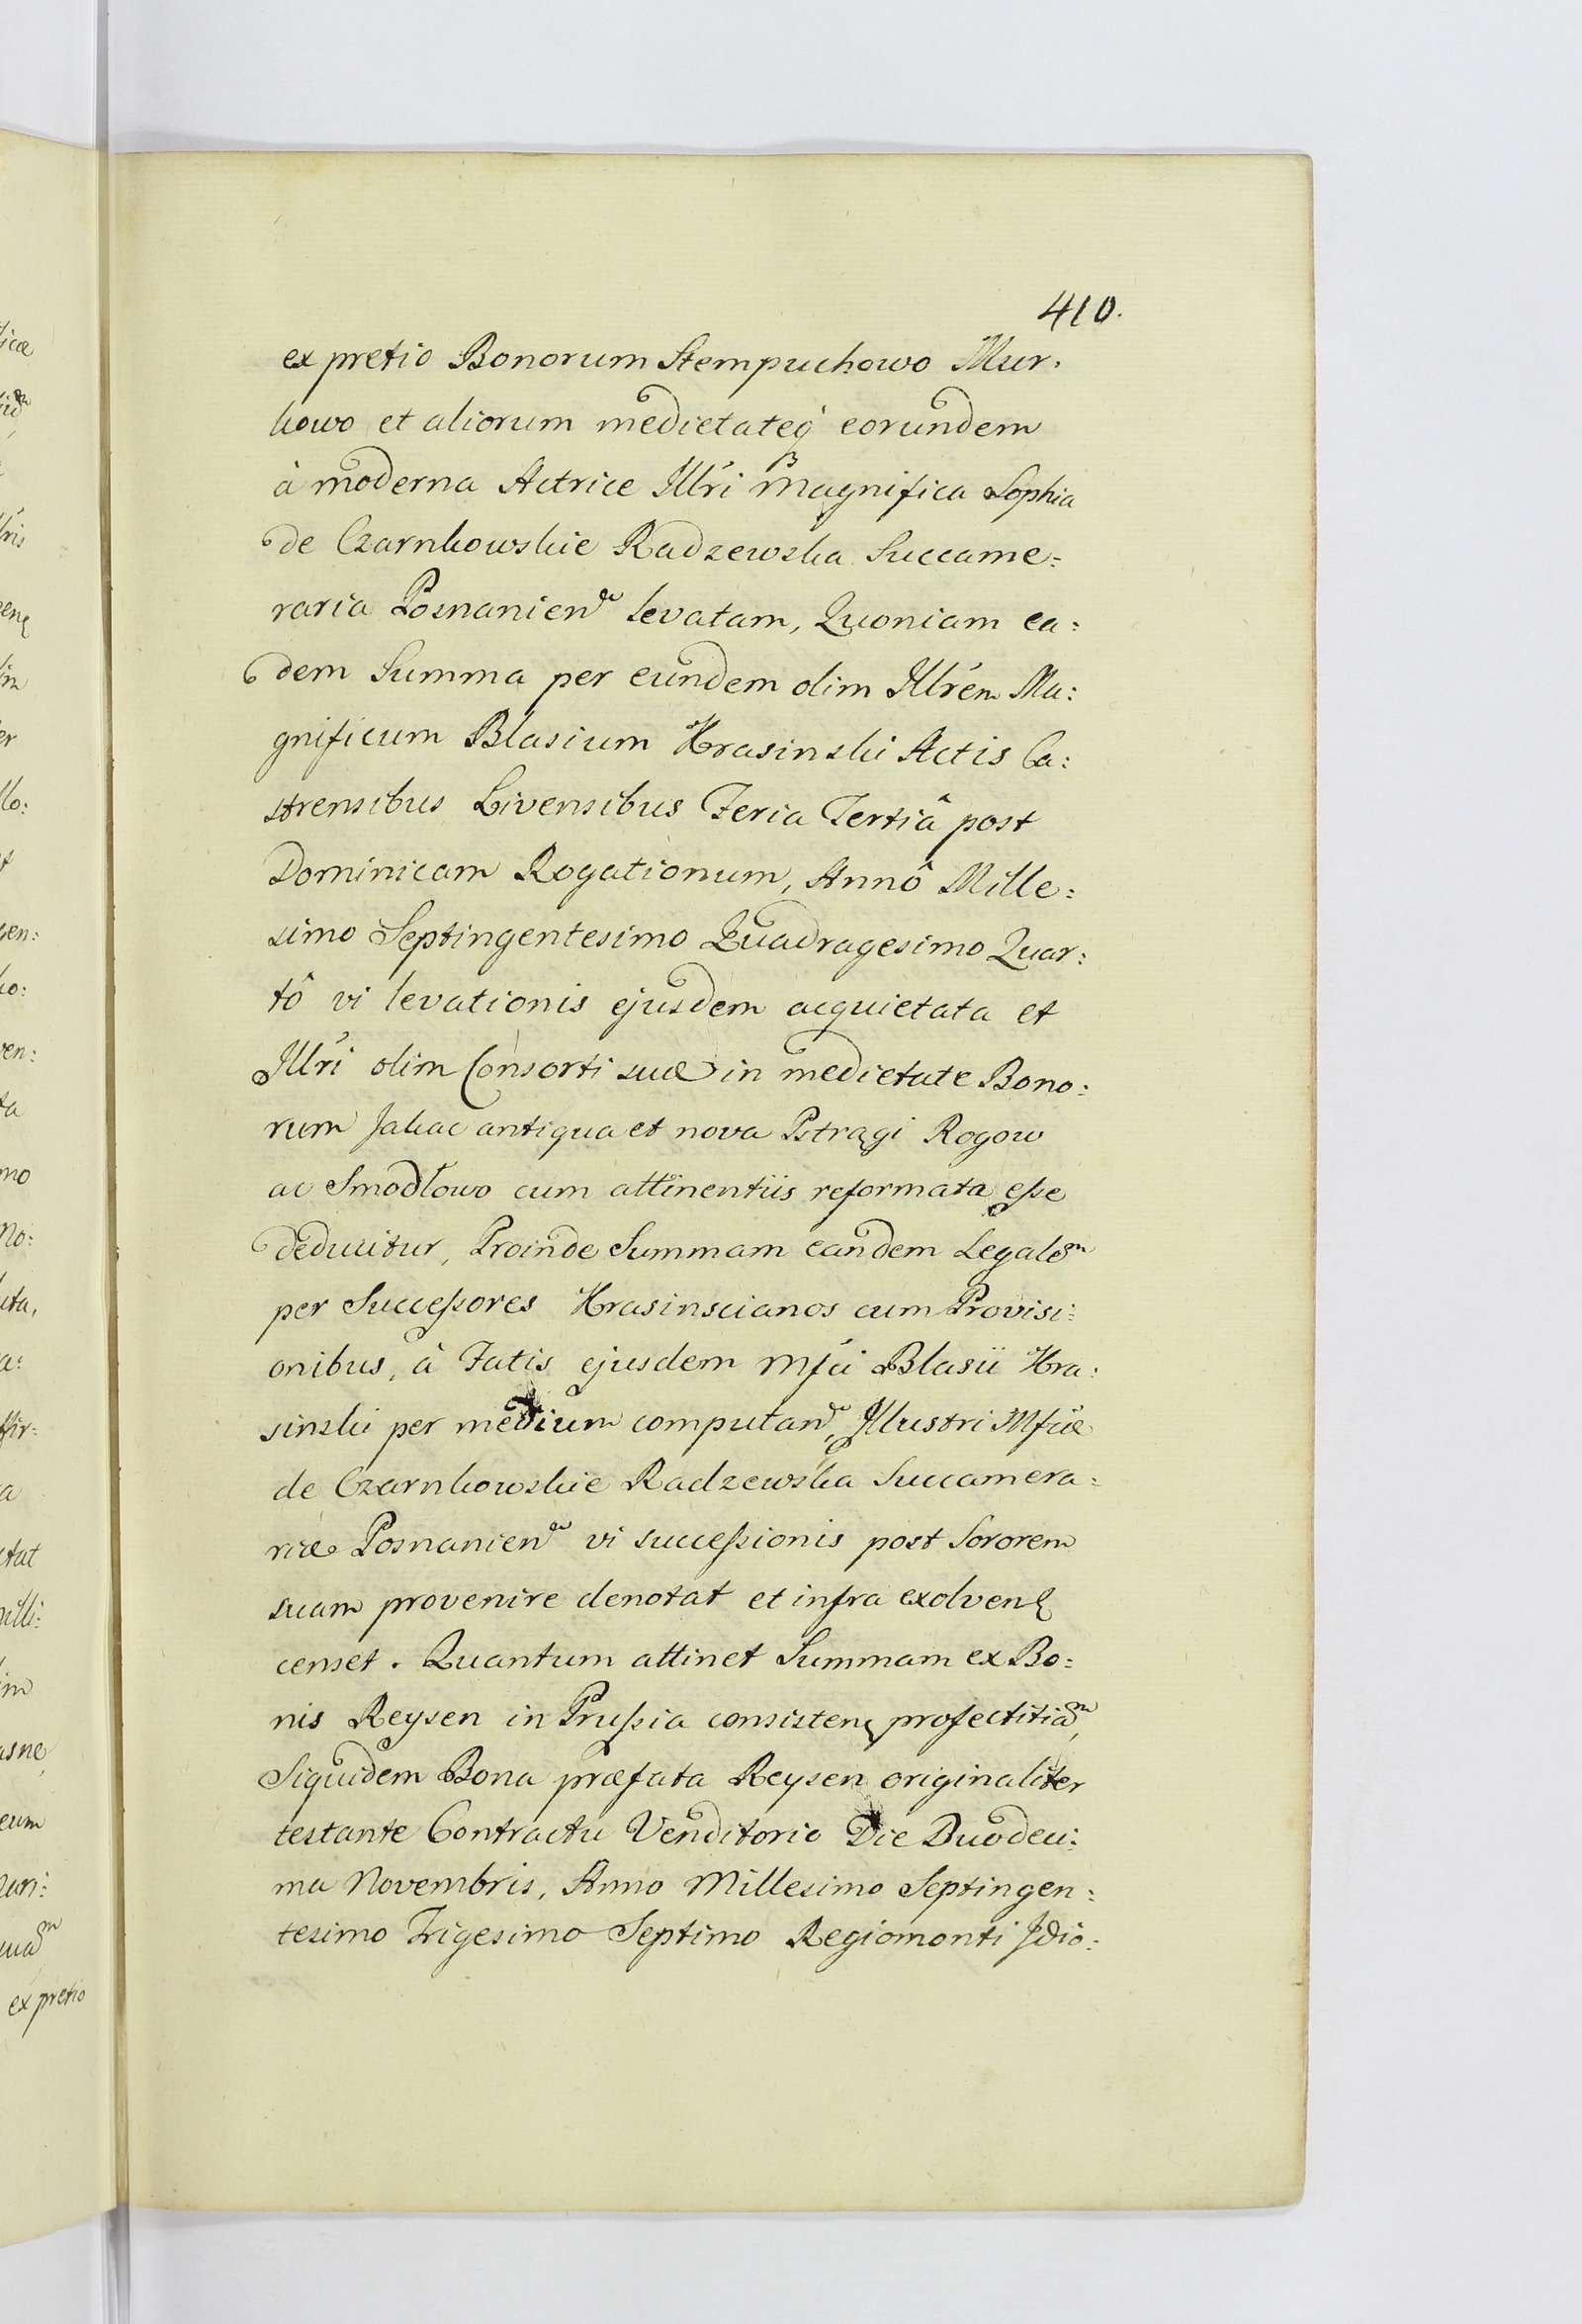 410.
ex pretio Bonorum Stempuchowo Mur:
kowo et aliorum medietateq́ eorundem
à moderna Actrice Illri Magnifica Sophia
de Czarnkowskie Radzewska Succame:
raria Posnanien levatam, Quoniam ea:
dem Summa per eundem olim Illrem Ma:
gnificum Blasium Krasinski Actis Ca:
strensibus Livensibus Feria Tertiâ post
Dominicam Rogationum, Annô Mille:
simo Septingentesimo Quadragesimo Quar:
tô vi levationis ejusdem acquietata et
Illri olim Consorti suæ in medietate Bono:
rum Jakac antiqua et nova Pstrągi Rogow
ac Smodłowo cum attinentiis reformata eſse
deducitur, Proinde Summam eandem Legalem
per Succeſsores Krasinscianos cum Provisi:
onibus, à Fatis ejusdem Mfci Blasii Kra:
sinski per medium computan, Illustri Mfcæ
de Czarnkowskie Radzewska Succamera:
riæ Posnanien vi succeſsionis post Sororem
suam provenire denotat et infra exolven
censet. Quantum attinet Summam ex Bo:
nis Reysen in Pruſsia consisten profectitiam,
Siquidem Bona præfata Reysen originaliter
testante Contractu Venditorio Die Duodeci:
ma Novembris, Anno Millesimo Septingen:
tesimo Trigesimo Septimo Regiomonti Jdio:
ex pretio